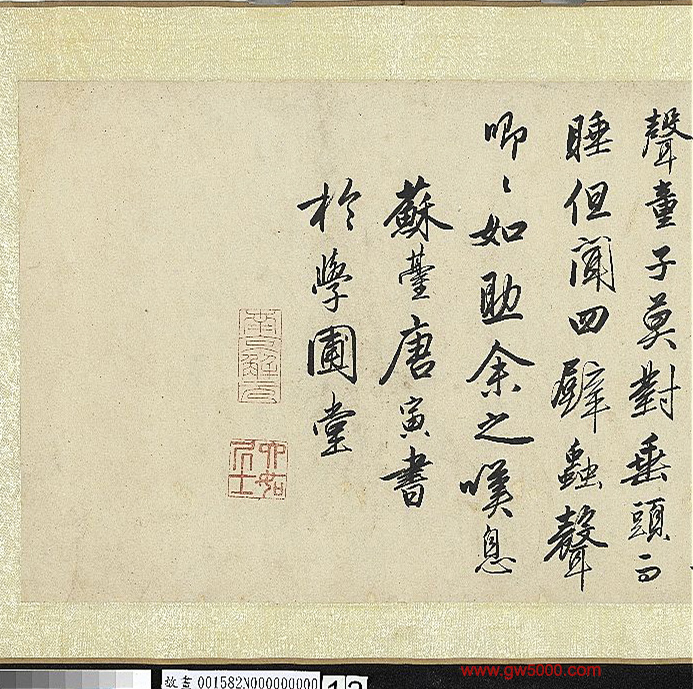 聲童子莫對垂頭而
睡但聞四壁蟲聲
唧〻如助余之嘆息
蘇臺唐寅書
於學圃堂
南京解元
六如居士
故畫 001582N000000000
www.gw5000.com